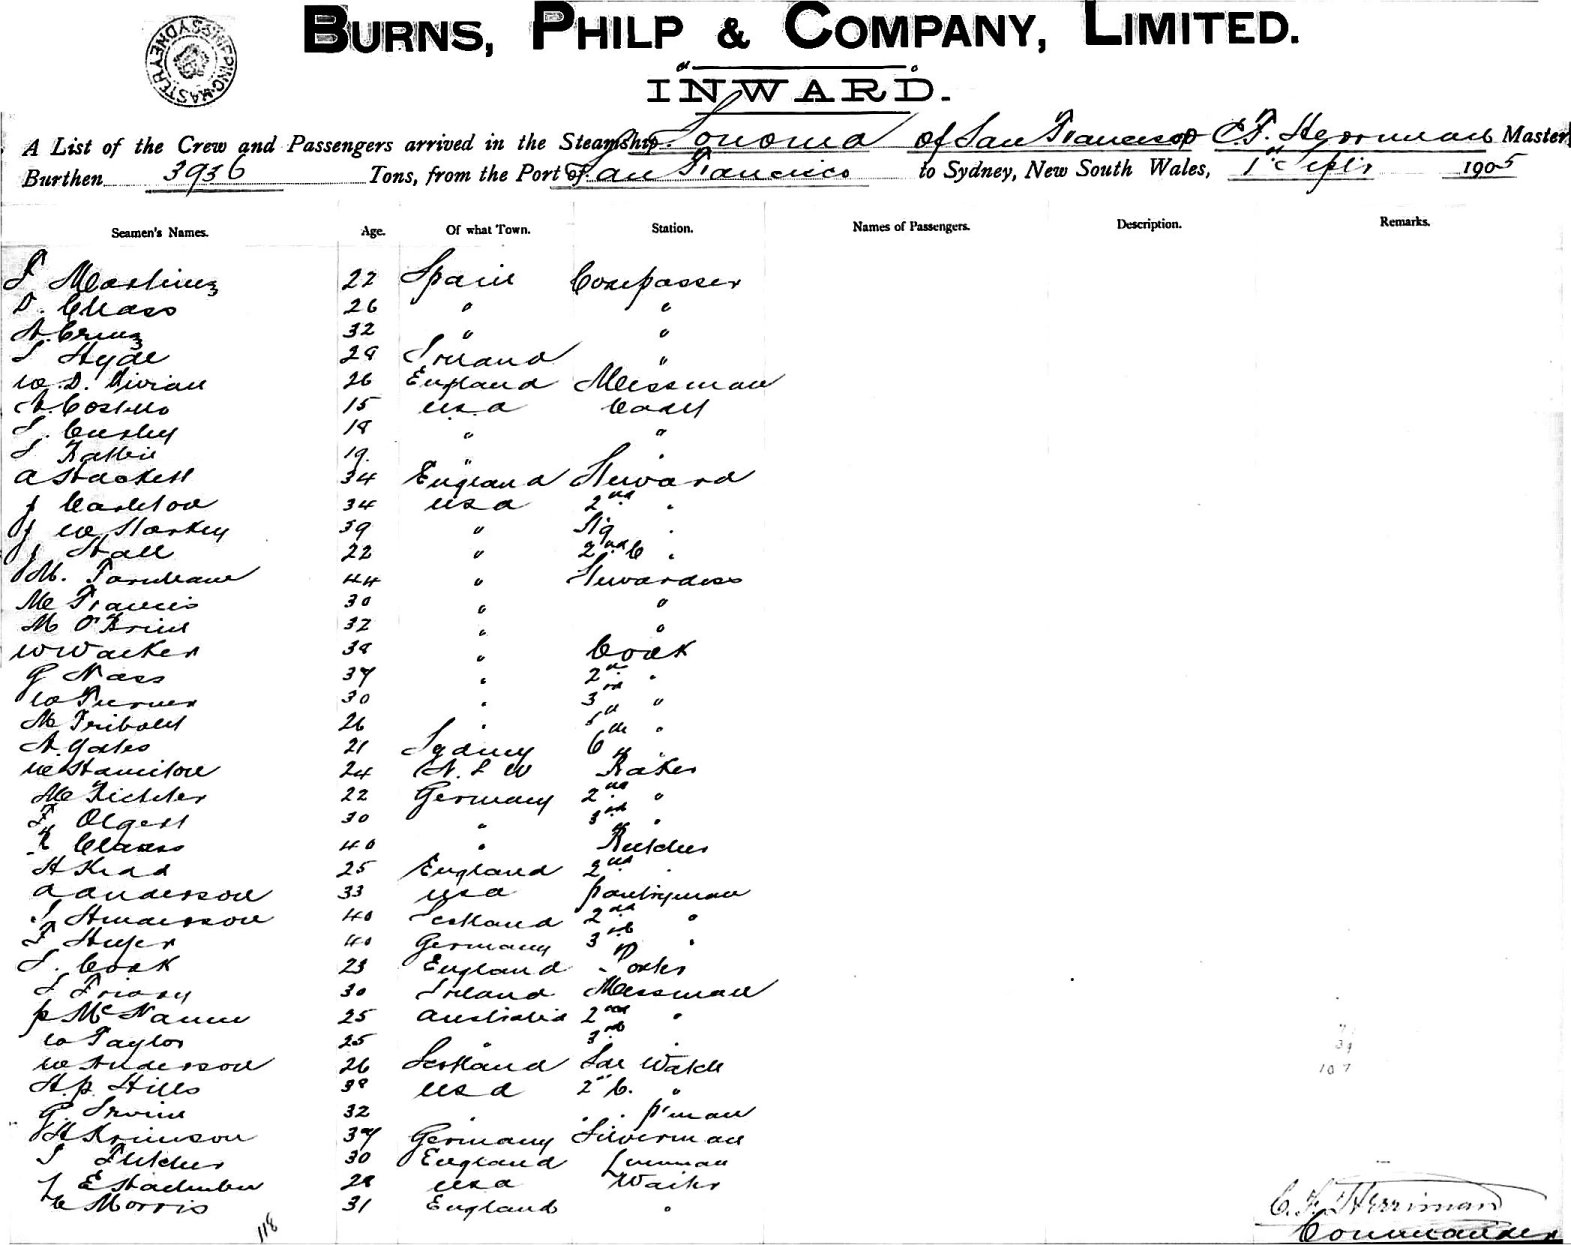 SHIPPING MASTER SYDNEY
BURNS, PHILP & COMPANY, LIMITED.
INWARD.
A List of the Crew and Passengers arrived in the Steamship Sonoma of San Francisco C F. Herriman Master
Burthen 3936 Tons, from the Port of San Francisco to Sydney, New South Wales, 1st Sept 1905
Seamen's Names. Age. Of what Town. Station. Names of Passengers. Description. Remarks.
F Martinez 22 Spain Compasser
D. Chaso 26 " "
A. Cruz 32 " "
J Hyde 29 Ireland "
W. D. Vivian 26 England Messman
A. Costello 15 USA Cadet
J. Curley 18 " "
J 19 " "
A Hackett 34 England Steward
J Carleton 34 USA 2nd "
J W Starkey 39 " Stg "
J Hall 22 " 2nd C "
M. 44 " Stewardess
M Francis 30 " "
M O'Brien 32 " "
W Walker 38 " Cook
G Nass 37 " 2nd "
W Turner 30 " 3rd "
M Tribolet 26 " "
A. Yates 21 Sydney 6th "
W Hamilton 24 N. S W Baker
M Richter 22 Germany 2nd "
F Olgell 30 " 3rd "
R Claxss 40 " Butcher
H Head 25 England 2nd "
A Anderson 33 USA Pantryman
J Henderson 40 Scotland 2nd "
F Huper 40 Germany 3rd "
J. Cook 23 England Porter
J Friary 30 Ireland Messman
P McNamee 25 Australia 2nd "
W Taylor 25 " 3rd "
W Anderson 26 Scotland Sal Watch
H. P. Hills 38 USA 2nd C. "
G. Irvine 32 " " " P'man
H Krimson 37 Germany Silverman
J Fletcher 30 England Linenman
J E Stachuber 28 USA Waiter
C Morris 31 England "
118
39
107
C. F. Herriman
Commander